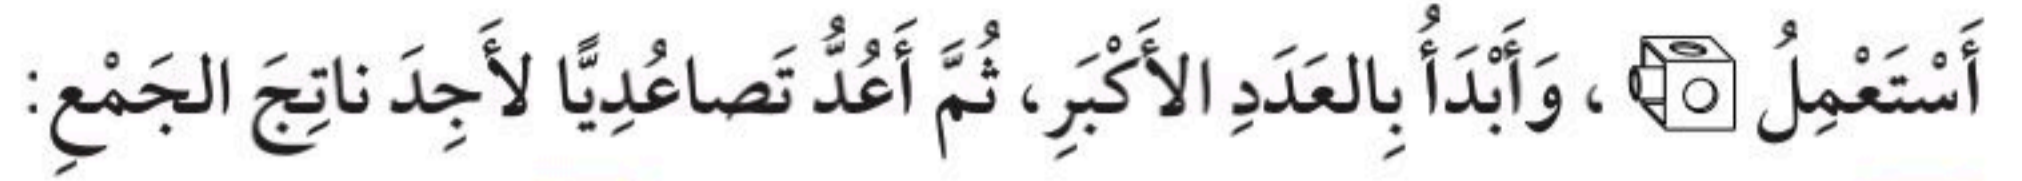 أَسْتَعْمِلُ ، وَأَبْدَأُ بِالعَدَدِ الأَكْبَرِ، ثُمَّ أَعُدُّ تَصاعُدِيًّا لأَجِدَ ناتِجَ الجَمْعِ: